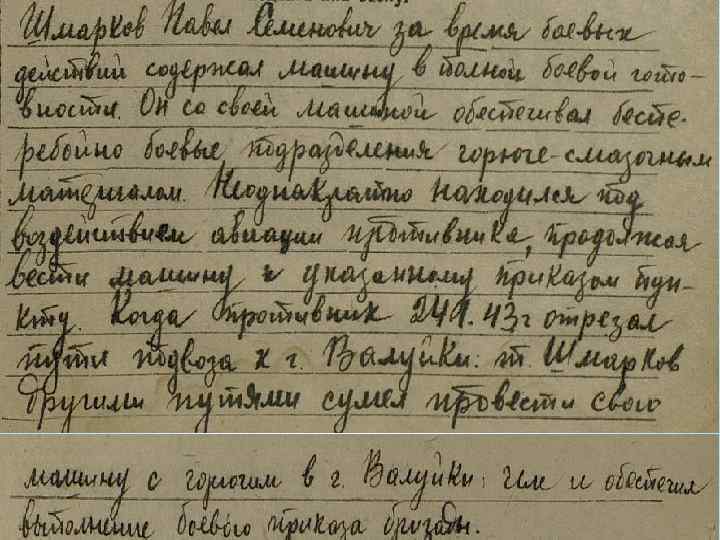 Шмарков Павел Семенович за время боевых
действий содержал машину в полной боевой гото-
вности. Он со своей машиной обеспечивал беспе-
ребойно боевые подразделения горюче-смазочным
материалом. Неоднакратно находился под
воздействием авиации противника, продолжая
вести машину к указанному приказом пун-
кту. Когда противник 43г отрезал
пути подвоза к г. Валуйки: т. Шмарков
другими путями сумел провести свою
машину с горючим в г. Валуйки: чем и обеспечил
выполнение боевого приказа бригады.